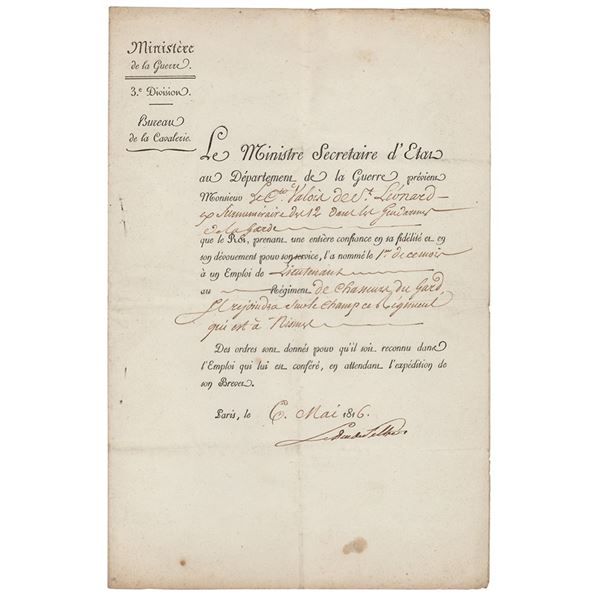 Ministère
de la Guerre.
3.e Division.
Bureau
de la Cavalerie.
Le Ministre Secretaire d'Etat
au Département de la Guerre prévient
Monsieur le Cte. Valois de St. Léonard
ex Surnuméraire des 12 dans les Gendarmes
de la Garde
que le Roi, prenant une entière confiance en sa fidélité et en
son dévouement pour son service, l'a nommé le 1er de ce mois
à un Emploi de Lieutenant
au Régiment de Chasseurs du Gard
Il rejoindra sur le champ ce Régiment
qui est à Nismes
Des ordres sont donnés pour qu'il soit reconnu dans
l'Emploi qui lui est conféré, en attendant l'expédition de
son Brevet.
Paris, le 6. Mai 1816.
Le Duc de